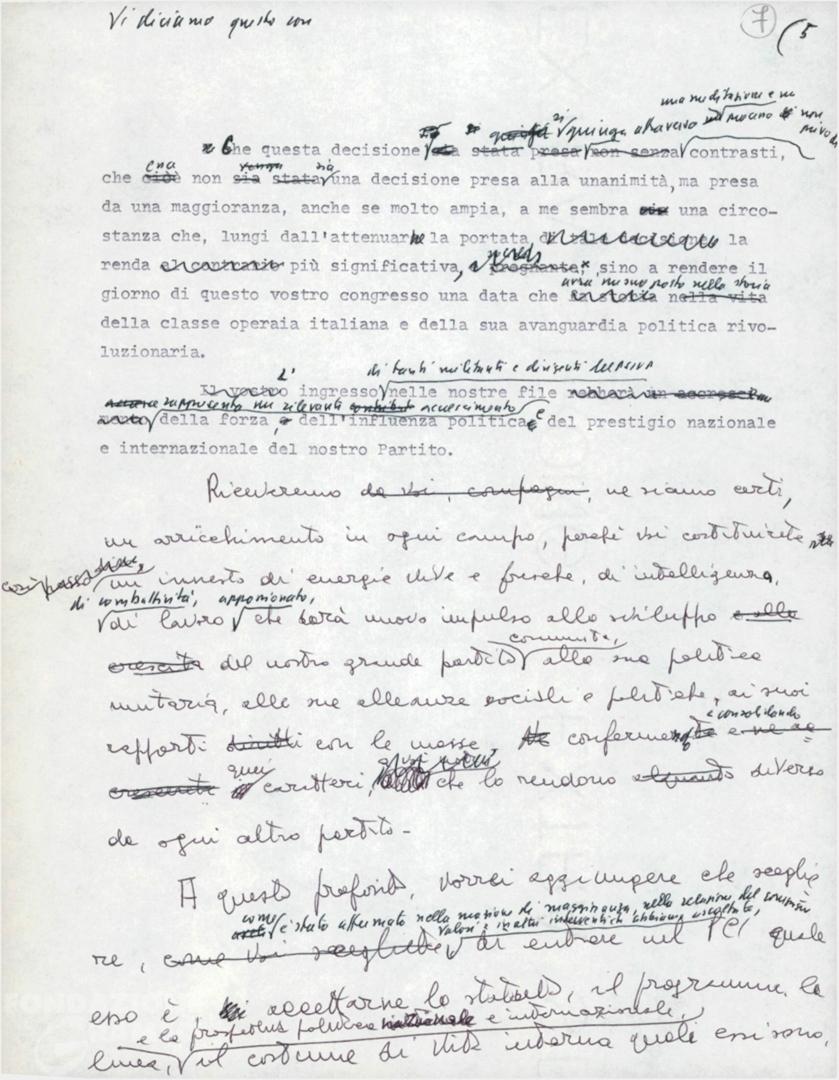 Vi diciamo questo con
7 (5
una meditazione e un
si giunga attraverso non
Che questa decisione stata presa non senza contrasti,
che cioè non sia stata una decisione presa alla unanimità, ma presa
da una maggioranza, anche se molto ampia, a me sembra una circo-
stanza che, lungi dall'attenuarne la portata la
renda al contrario più significativa, pregnante, sino a rendere il
avrà un suo posto nella storia
giorno di questo vostro congresso una data che in storia nella vita
della classe operaia italiana e della sua avanguardia politica rivo-
luzionaria.
di tanti militanti e dirigenti del PSIUP
L'
Il vostro ingresso nelle nostre file
rappresenta un rilevante contributo accrescimento
della forza, e dell'influenza politica e del prestigio nazionale
e internazionale del nostro Partito.
Riceveremo da voi, compagni, ne siamo certi,
un arricchimento in ogni campo, perché voi costituirete
un innesto di energie vive e fresche, di intelligenza,
di combattività, appassionato,
di lavoro che darà nuovo impulso allo sviluppo e alla
comunista,
crescita del nostro grande partito alla sua politica
unitaria, alle sue alleanze sociali e politiche, ai suoi
e consolidando
rapporti diretti con le masse, confermando
quei
crescente caratteri, che lo rendono alquanto diverso
da ogni altro partito -
A questo proposito, vorrei aggiungere che sceglie
come è stato affermato nella mozione di maggioranza, nella relazione del compagno
Valori e in altri interventi che abbiamo ascoltato,
re, come voi scegliete, di entrare nel PCI quale
esso è, accettarne lo statuto, il programma, la
e la prospettiva politica nazionale e internazionale,
linea, il costume di vita interna quali essi sono,